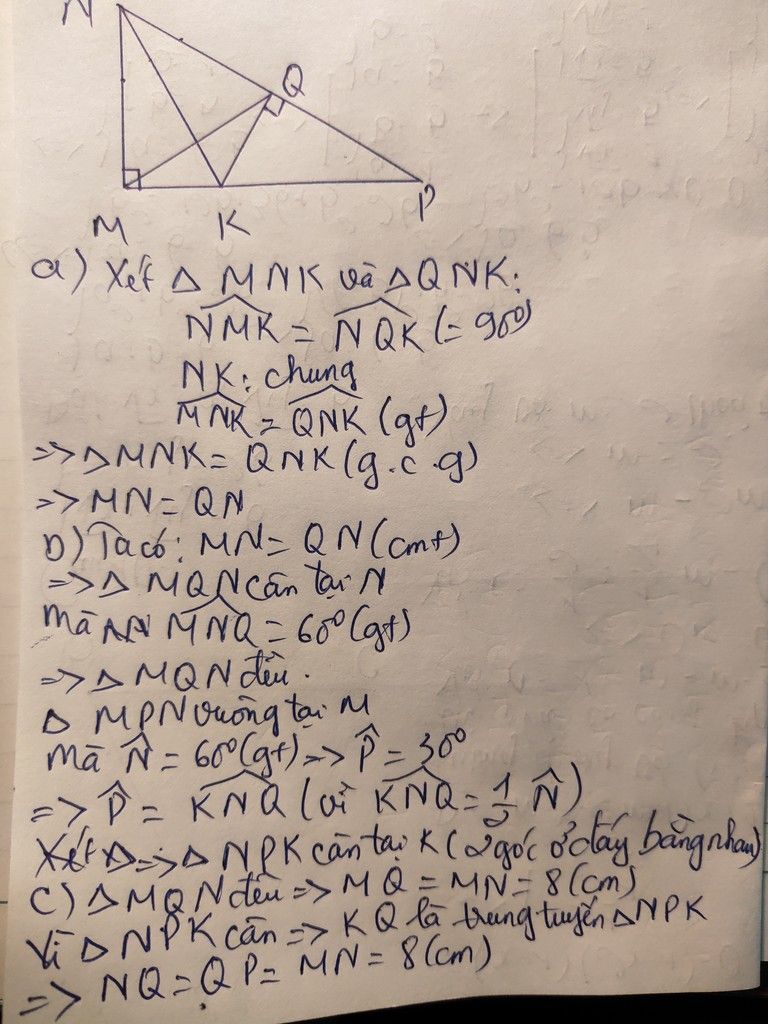 N
Q
M K P
a) Xét △ MNK và △QNK:
NMK = NQK (= 90⁰)
NK: chung
MNK = QNK (gt)
=> △MNK = QNK (g.c.g)
=> MN = QN
b) Ta có: MN = QN (cmt)
=> △ MQN cân tại N
mà MNQ = 60⁰ (gt)
=> △ MQN đều.
△ MPN vuông tại M
mà N̂ = 60⁰ (gt) => P̂ = 30⁰
=> P̂ = KNQ (vì KNQ = 1/2 N̂)
Xét △ => △ NPK cân tại K (2 góc ở đáy bằng nhau)
c) △MQN đều => MQ = MN = 8 (cm)
Vì △ NPK cân => KQ là trung tuyến △NPK
=> NQ = QP = MN = 8 (cm)